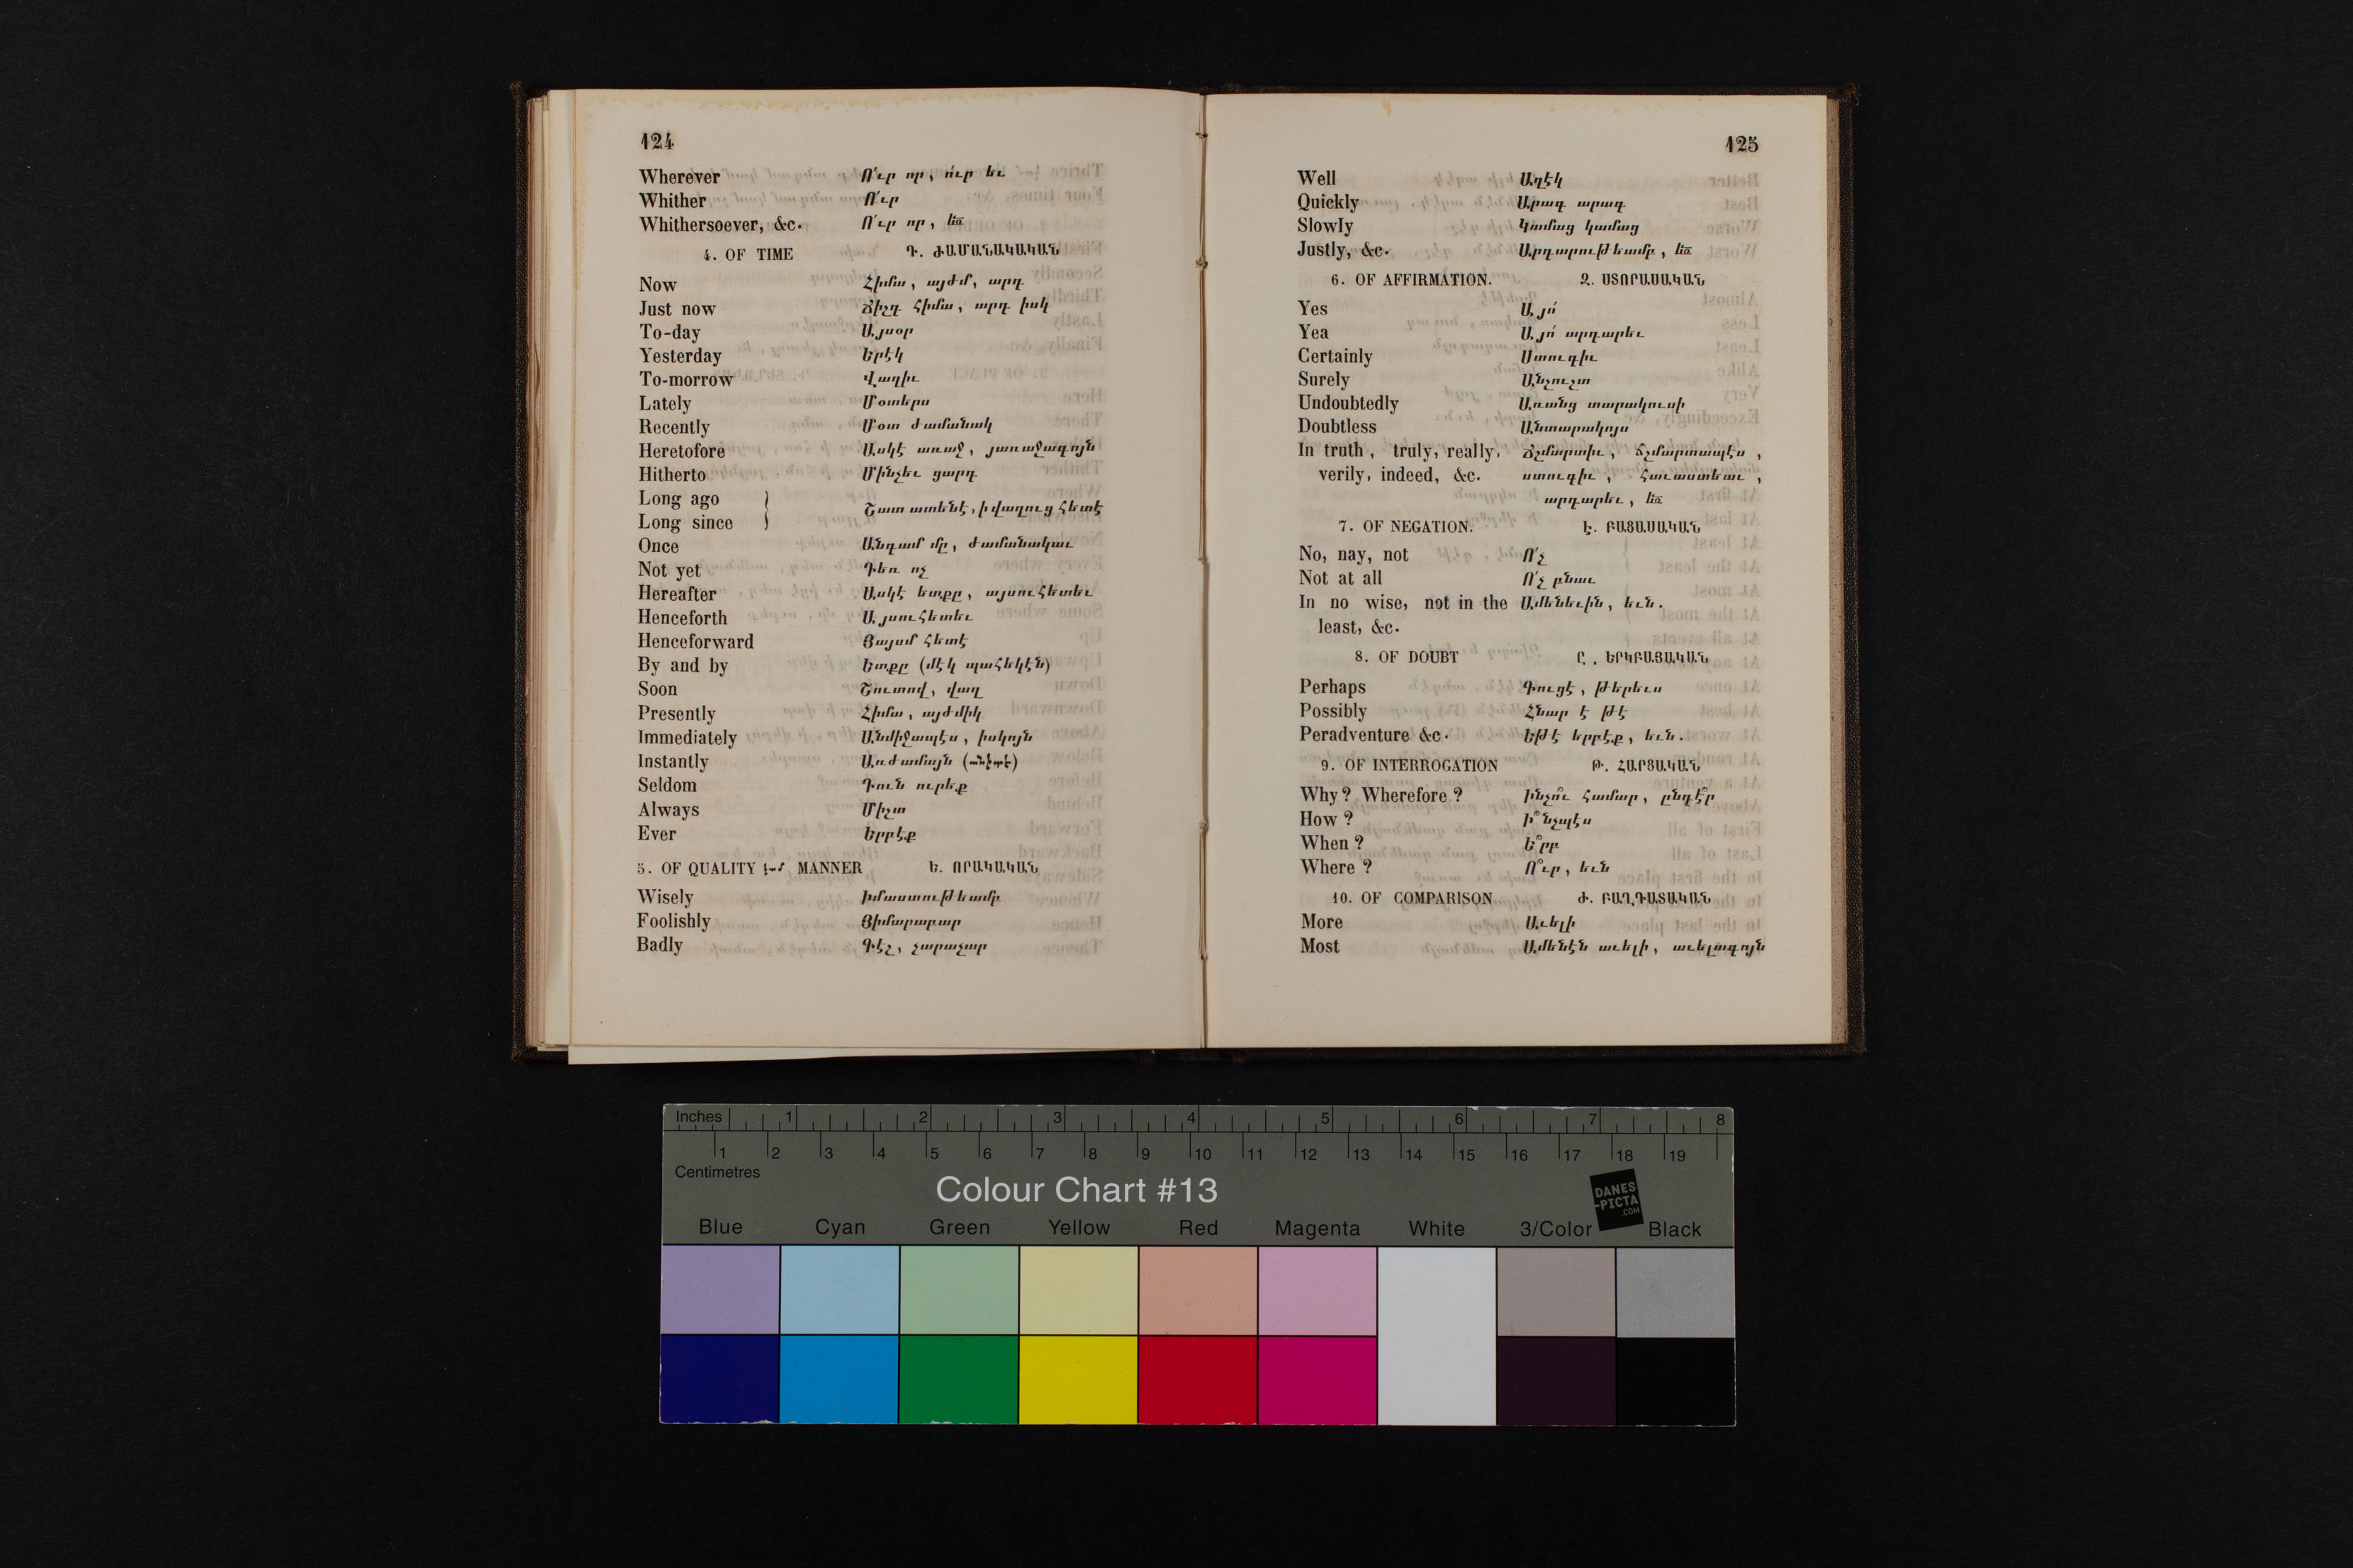 124
Wherever Ո՛ւր որ, ո՛ւր եւ
Whither Ո՛ւր
Whithersoever, &c. Ո՛ւր որ, եւն
4. OF TIME Դ. ԺԱՄԱՆԱԿԱԿԱՆ
Now Հիմա, այժմ, արդ
Just now Ճիշդ հիմա, արդ իսկ
To-day Այսօր
Yesterday Երէկ
To-morrow Վաղիւ
Lately Մօտերս
Recently Մօտ ժամանակ
Heretofore Ասկէ առաջ, յառաջագոյն
Hitherto Մինչեւ ցարդ
Long ago
Long since Շատ ատենէ, ի վաղուց հետէ
Once Անգամ մը, ժամանակաւ
Not yet Դեռ ոչ
Hereafter Ասկէ ետքը, այսուհետեւ
Henceforth Այսուհետեւ
Henceforward Յայսմ հետէ
By and by Ետքը (մէկ պահեկէն)
Soon Շուտով, վաղ
Presently Հիմա, այժմիկ
Immediately Անմիջապէս, իսկոյն
Instantly Առժամայն
Seldom Դուն ուրեք
Always Միշտ
Ever Երբէք
5. OF QUALITY կամ MANNER Ե. ՈՐԱԿԱԿԱՆ
Wisely Իմաստութեամբ
Foolishly Յիմարաբար
Badly Գէշ, չարաչար
125
Well Աղէկ
Quickly Արագ արագ
Slowly Կամաց կամաց
Justly, &c. Արդարութեամբ, եւն
6. OF AFFIRMATION. Զ. ՍՏՈՐԱՍԱԿԱՆ
Yes Այո՛
Yea Այո՛ արդարեւ
Certainly Ստուգիւ
Surely Անշուշտ
Undoubtedly Առանց տարակուսի
Doubtless Անտարակոյս
In truth, truly, really, Ճշմարտիւ, ճշմարտապէս,
verily, indeed, &c. ստուգիւ, հաւաստեաւ,
արդարեւ, եւն
7. OF NEGATION. Է. ԲԱՑԱՍԱԿԱՆ
No, nay, not Ո՛չ
Not at all Ո՛չ բնաւ
In no wise, not in the Ամենեւին, եւն.
least, &c.
8. OF DOUBT Ը. ԵՐԿԲԱՅԱԿԱՆ
Perhaps Գուցէ, թերեւս
Possibly Հնար է թէ
Peradventure &c. Եթէ երբէք, եւն.
9. OF INTERROGATION Թ. ՀԱՐՑԱԿԱՆ
Why? Wherefore? Ինչո՞ւ համար, ընդէ՞ր
How? Ի՞նչպէս
When? Ե՞րբ
Where? Ո՞ւր, եւն
10. OF COMPARISON Ժ. ԲԱՂԴԱՏԱԿԱՆ
More Աւելի
Most Ամենէն աւելի, աւելագոյն
Inches 1 2 3 4 5 6 7 8
1 2 3 4 5 6 7 8 9 10 11 12 13 14 15 16 17 18 19
Centimetres
Colour Chart #13
DANES
-PICTA
.COM
Blue Cyan Green Yellow Red Magenta White 3/Color Black